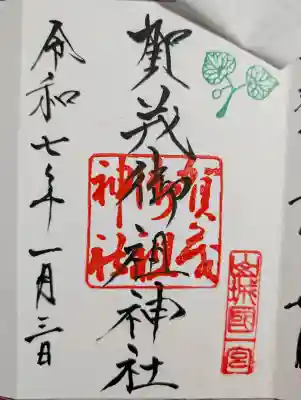 山城国一宮
賀茂御祖神社
賀茂御祖神社
令和七年一月三日